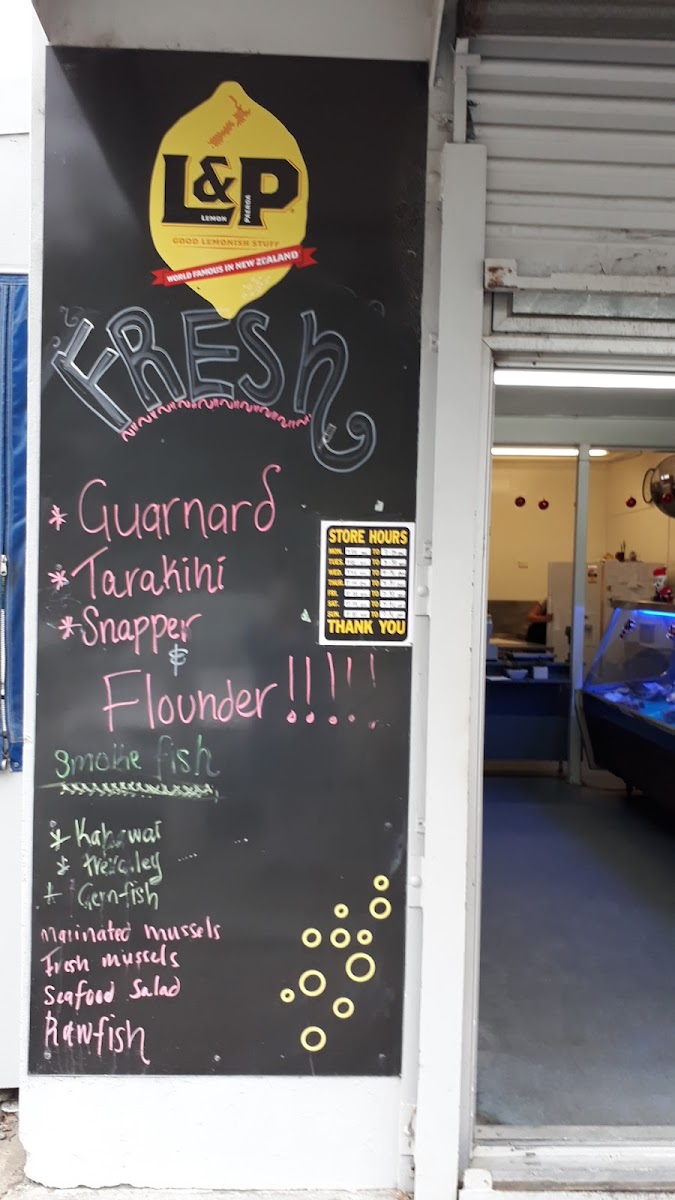 L&P
LEMON
PAEROA
GOOD LEMONISH STUFF
WORLD FAMOUS IN NEW ZEALAND
FRESh
* Guarnard
* Tarakihi
* Snapper
&
Flounder!!!!!
STORE HOURS
MON. TO
TUES. TO
WED. TO
THUR. TO
FRI. TO
SAT. TO
SUN. TO
THANK YOU
Smoke fish
* Kahawai
* trevalley
* Gemfish
Marinated mussels
Fresh mussels
Seafood Salad
Rawfish